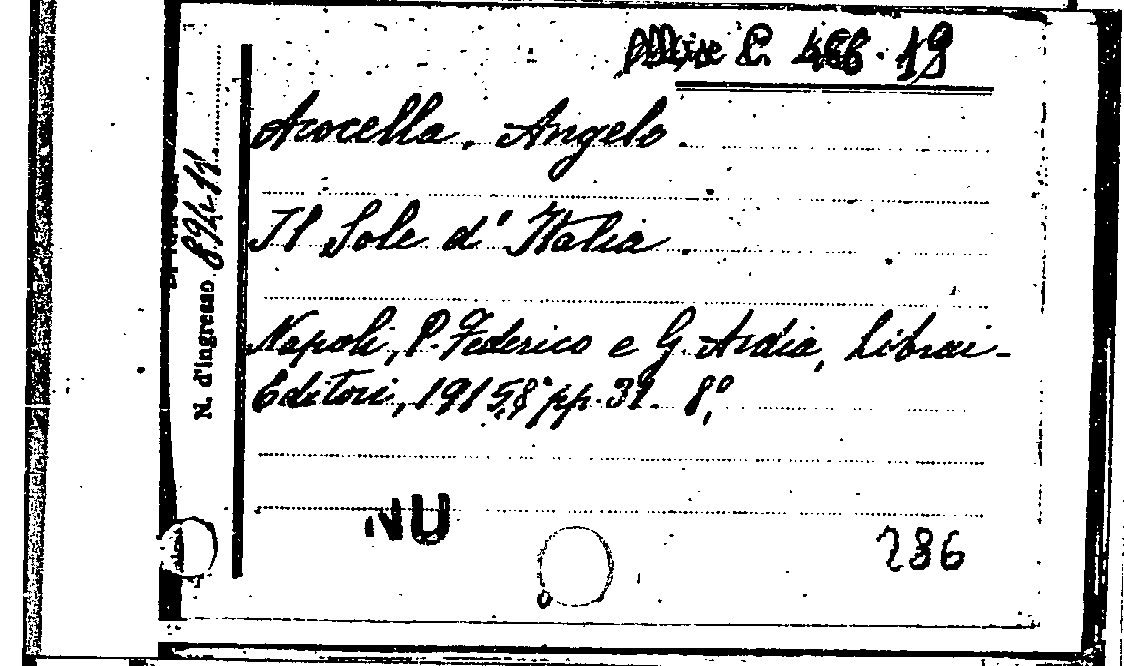 Misc. C. 486.19
Arocella, Angelo.
Il Sole d'Italia.
Napoli, P. Federico e G. Ardia, Librai-
Editori, 1915, 8° pp. 32. 8°
N. d'ingresso
NU
286